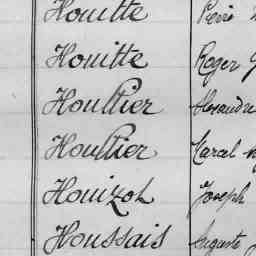 Houitte Pierre
Houitte Roger
Houllier Alexandre
Houllier
Houizot Joseph
Houssais Auguste